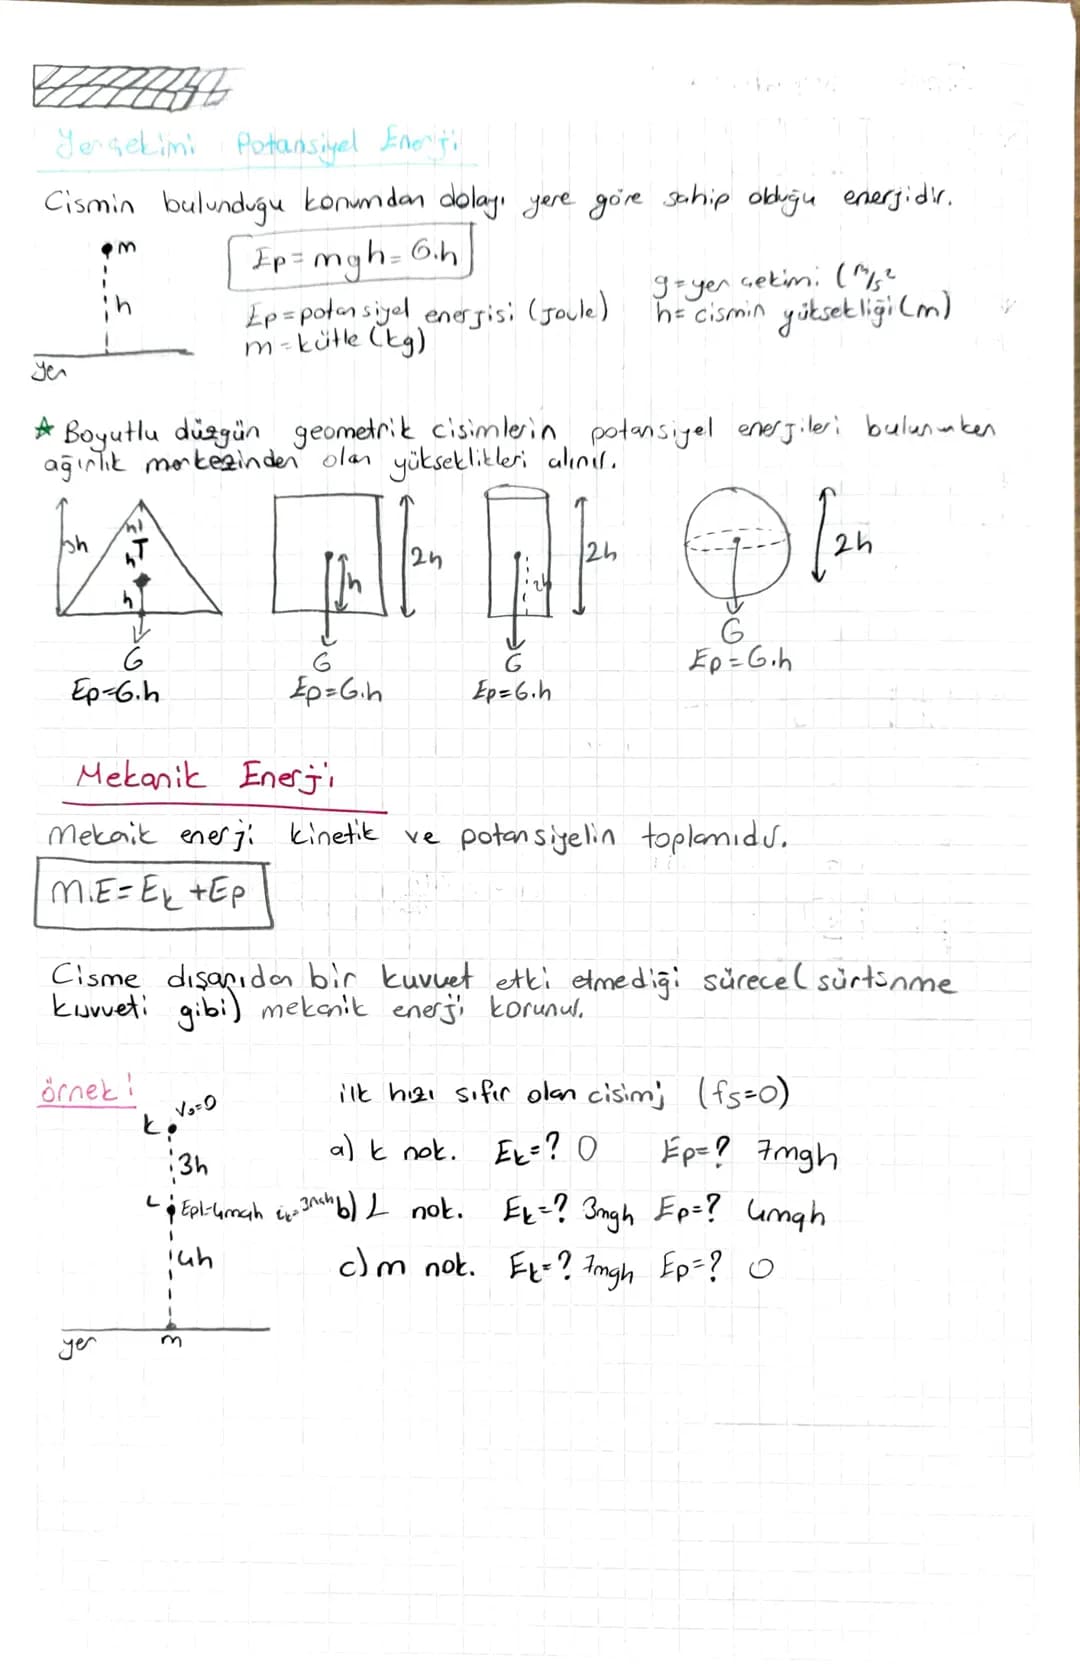 Yerçekimi Potansiyel Enerji
Cismin bulunduğu konumdan dolayı yere göre sahip olduğu enerjidir.
m
h
yer
Ep=mgh=G.h
Ep=potansiyel enerjisi (joule)
m=kütle (kg)
g=yer çekimi (m/s²
h= cismin yüksekliği (m)
☆ Boyutlu düzgün geometrik cisimlerin potansiyel enerjileri bulunurken
ağırlık merkezinden olan yükseklikleri alınır.
3h h h h
h 2h
2h
2h
G G G G
Ep=G.h Ep=G.h Ep=G.h Ep=G.h
Mekanik Enerji
Mekaik enerji kinetik ve potansiyelin toplamıdır.
M.E=Ek+Ep
Cisme dışarıdan bir kuvvet etki etmediği sürece(sürtünme
kuvveti gibi) mekanik enerji korunur.
örnek:
ilk hızı sıfır olan cisim; (fs=0)
k V₀=0
a) k nok. Ek=? 0 Ep=? 7mgh
3h
L EpL=4mgh Ek=3mgh
b) L nok. Ek=? 3mgh Ep=? 4mgh
4h
c) m nok. Ek=? 7mgh Ep=? 0
yer m